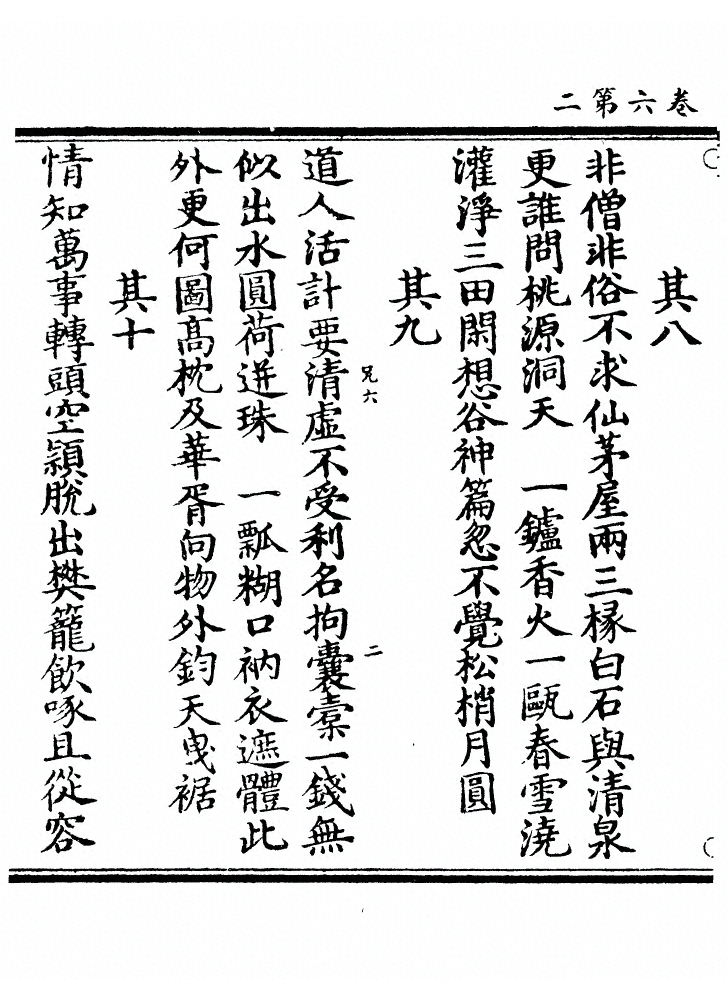 卷六第二
其八
非僧非俗不求仙茅屋兩三椽白石與清泉
更誰問桃源洞天　一鑪香火一甌春雪澆
灌淨三田閑想谷神篇忽不覺松梢月圓
其九
道人活計要清虛不受利名拘囊橐一錢無
兄六
二
似出水圓荷迸珠　一瓢糊口衲衣遮體此
外更何圖高枕及華胥向物外鈞天曳裾
其十
情知萬事轉頭空穎脫出樊籠飲啄且從容